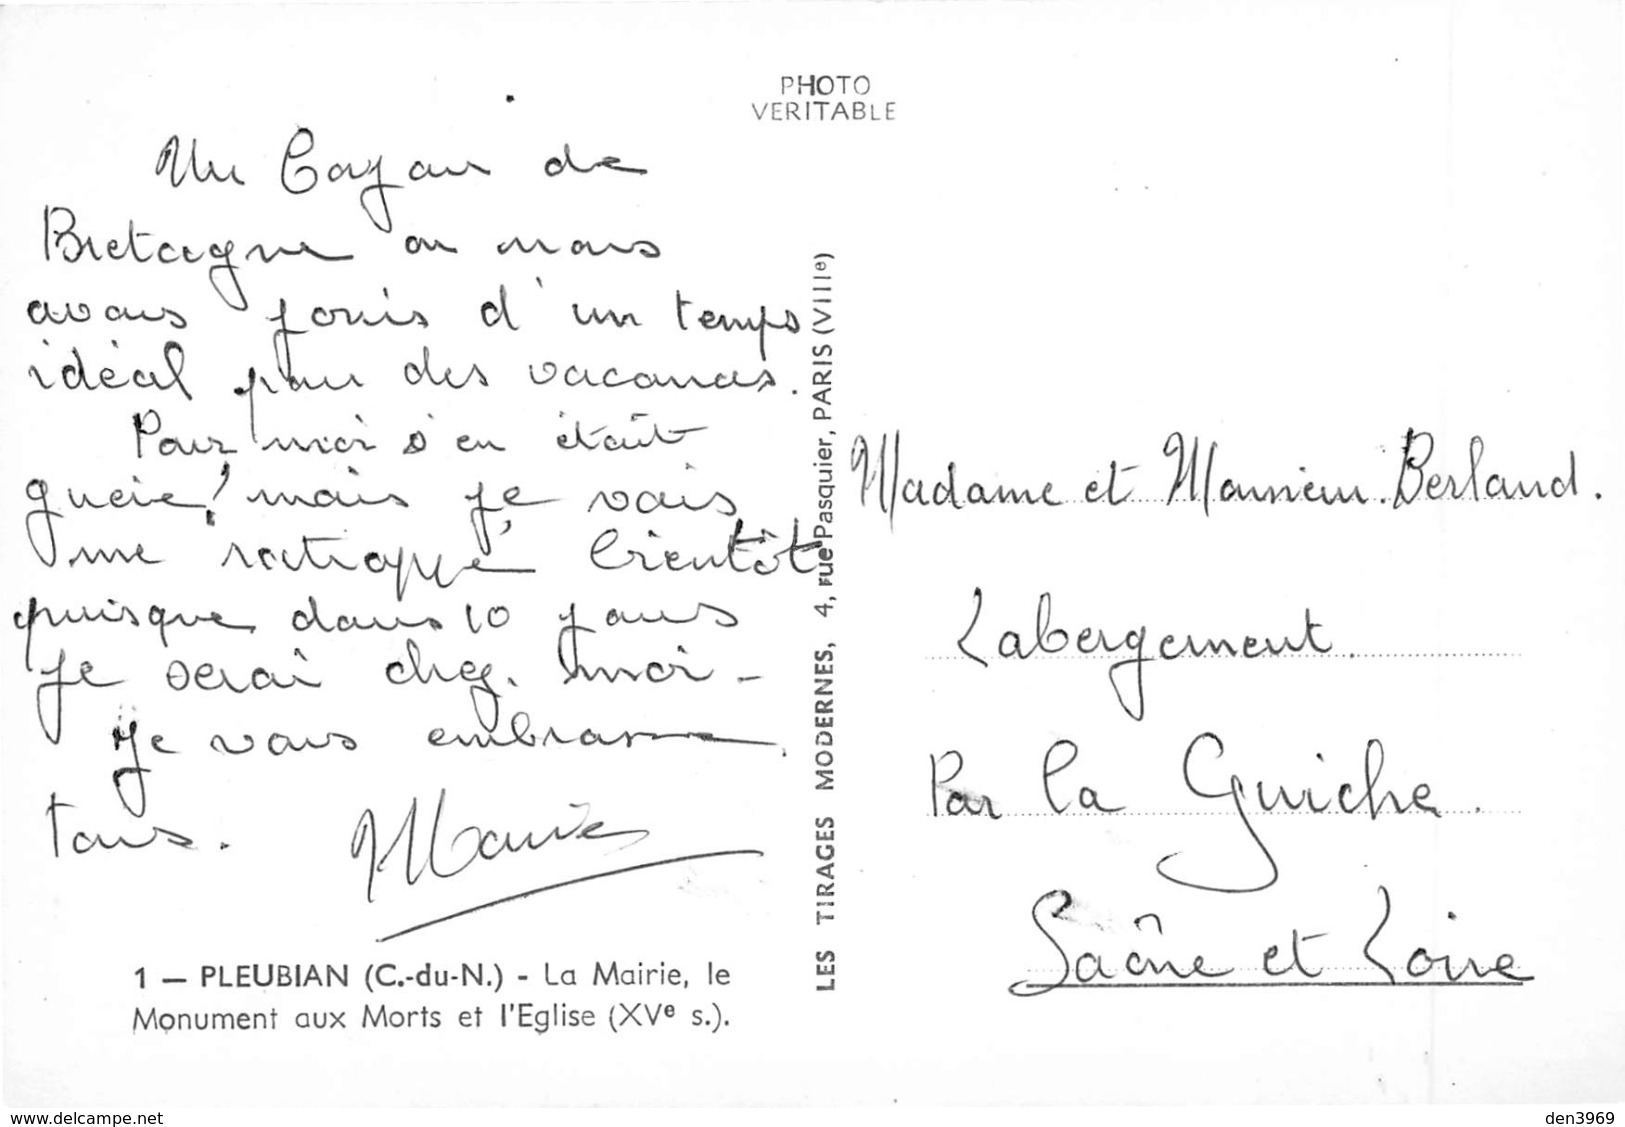 PHOTO
VERITABLE
Un Coyau de
Bretagne ou nous
avons jouis d'un temps
idéal pour des vacances.
Pour moi s'en était
guere! mais je vais
me ratrappé bientôt
puisque dans 10 jours
je serai chez moi -
Je vous embrasse
tous.
1 — PLEUBIAN (C.-du-N.) - La Mairie, le
Monument aux Morts et l'Eglise (XVe s.).
LES TIRAGES MODERNES, 4, rue Pasquier, PARIS (VIIIe)
Madame et Monsieur Berland.
Labergement.
Par la Guiche.
Saône et Loire
www.delcampe.net
den3969